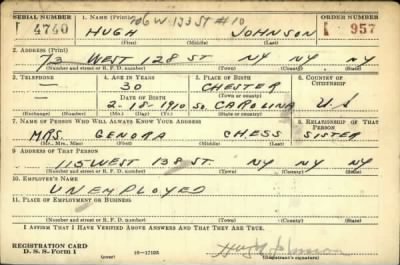 SERIAL NUMBER 1. NAME (Print) 106 W 133 ST #10 ORDER NUMBER
4740 HUGH JOHNSON 957
(First) (Middle) (Last)
2. ADDRESS (Print)
73 WEST 128 ST NY NY NY
(Number and street or R. F. D. number) (Town) (County) (State)
3. TELEPHONE 4. AGE IN YEARS 5. PLACE OF BIRTH 6. COUNTRY OF CITIZENSHIP
— 30 CHESTER
DATE OF BIRTH (Town or county)
— 2-18-1910 SO. CAROLINA U.S
(Exchange) (Number) (Mo.) (Day) (Yr.) (State or country)
7. NAME OF PERSON WHO WILL ALWAYS KNOW YOUR ADDRESS 8. RELATIONSHIP OF THAT PERSON
MRS. GENORA CHESS SISTER
(Mr., Mrs., Miss) (First) (Middle) (Last)
9. ADDRESS OF THAT PERSON
115 WEST 138 ST. NY NY NY
(Number and street or R. F. D. number) (Town) (County) (State)
10. EMPLOYER'S NAME
UNEMPLOYED
11. PLACE OF EMPLOYMENT OR BUSINESS
(Number and street or R. F. D. number) (Town) (County) (State)
I AFFIRM THAT I HAVE VERIFIED ABOVE ANSWERS AND THAT THEY ARE TRUE.
REGISTRATION CARD
D. S. S. Form 1 (over) 16—17105 Hugh Johnson
(Registrant's signature)